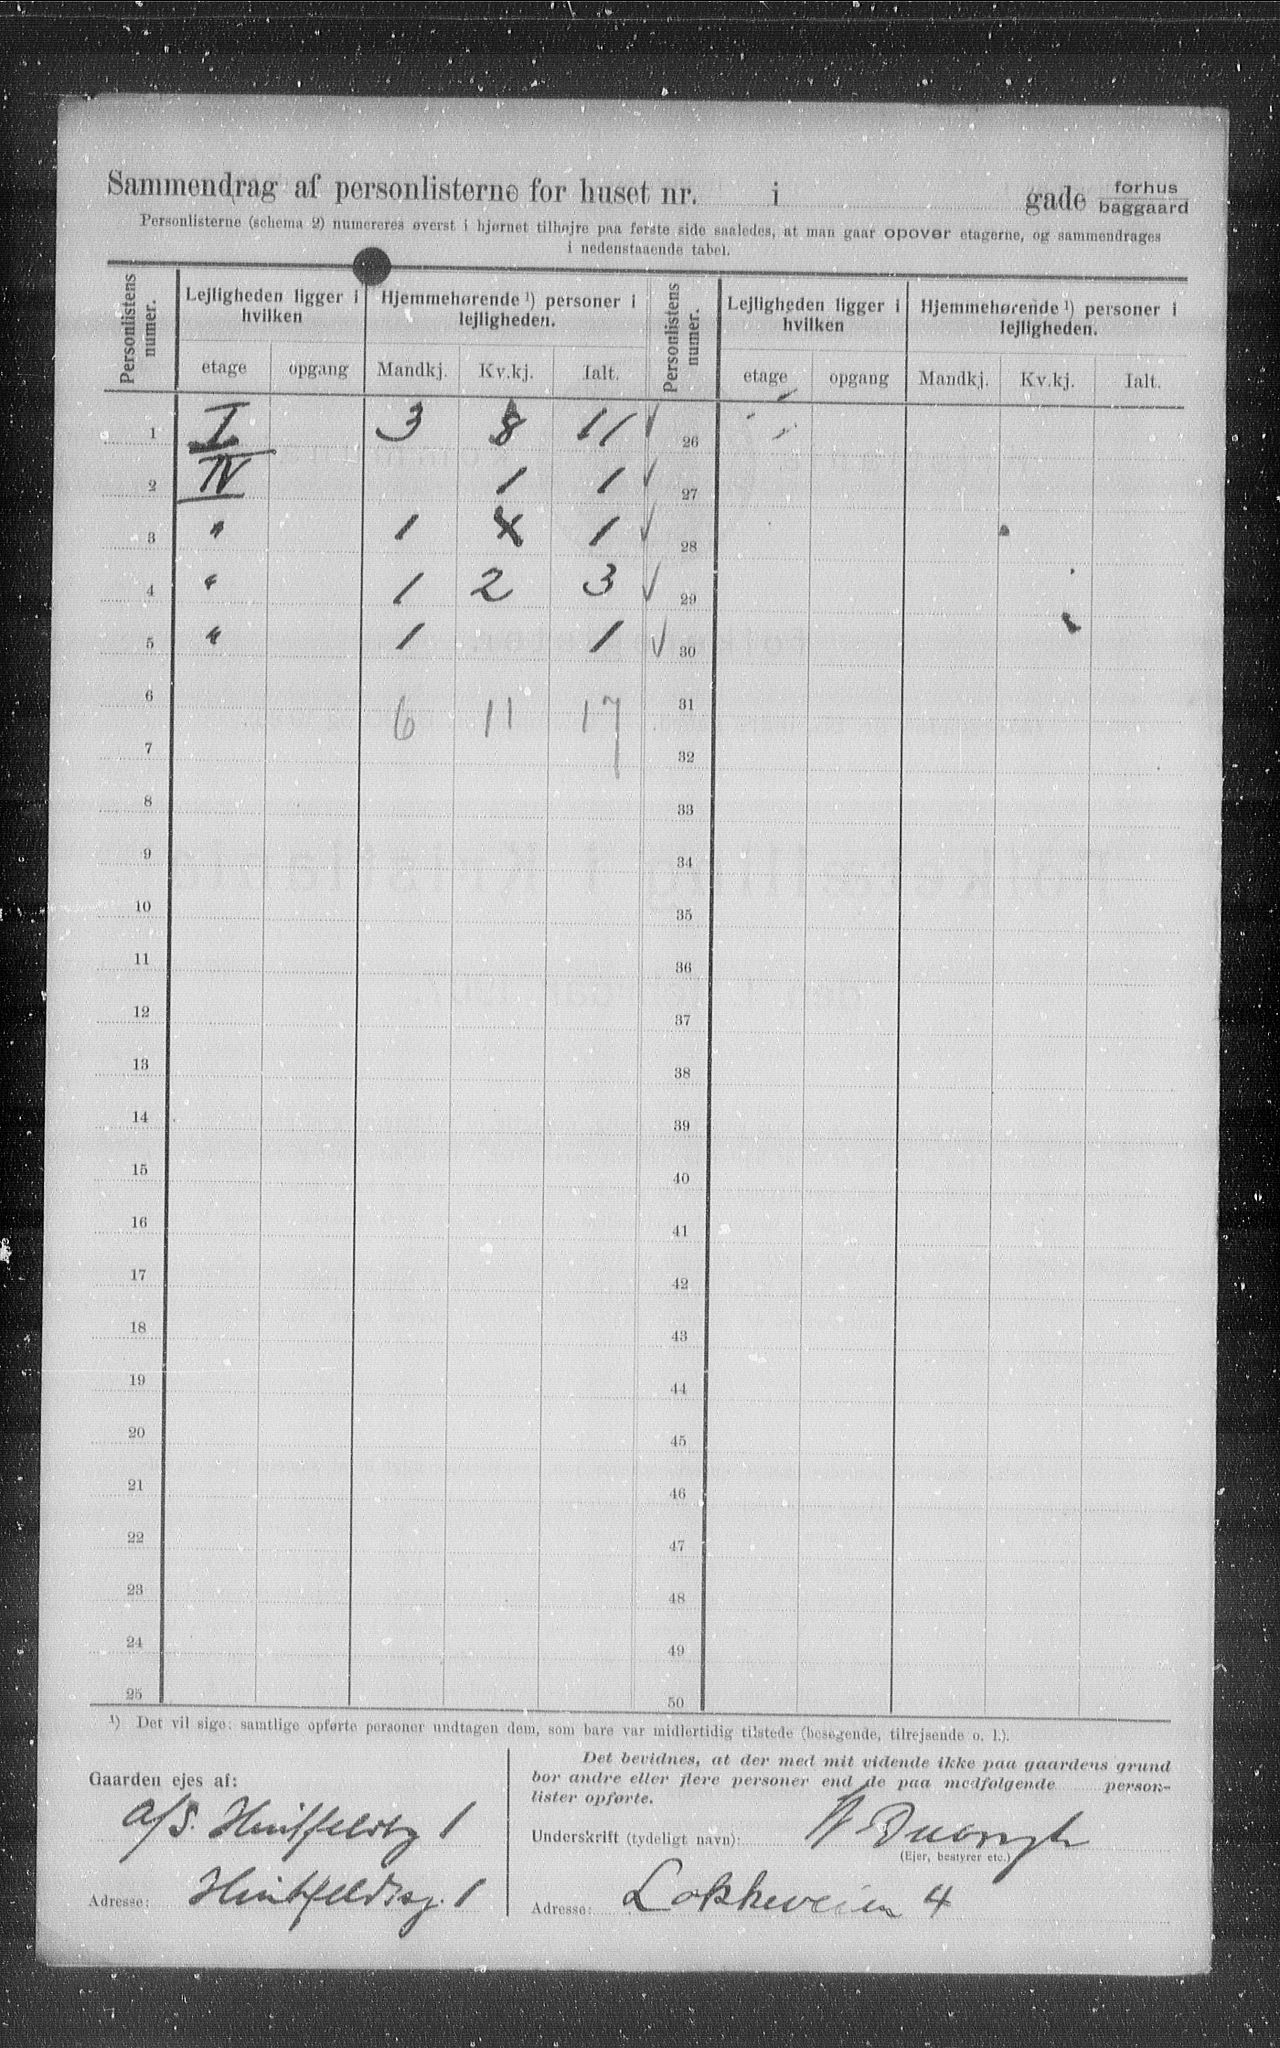 Sammendrag af personlisterne for huset nr. i gade forhus baggaard
Personlisterne (schema 2) numereres øverst i hjørnet tilhøjre paa første side saaledes, at man gaar opover etagerne, og sammendrages
i nedenstaaende tabel.
Personlistens numer. Lejligheden ligger i hvilken Hjemmehørende ¹) personer i lejligheden. Personlistens numer. Lejligheden ligger i hvilken Hjemmehørende ¹) personer i lejligheden.
etage opgang Mandkj. Kv.kj. Ialt. etage opgang Mandkj. Kv.kj. Ialt.
1 I 3 8 11 26
2 IV 1 1 27
3 " 1 1 28
4 " 1 2 3 29
5 " 1 1 30
6 6 11 17 31
7 32
8 33
9 34
10 35
11 36
12 37
13 38
14 39
15 40
16 41
17 42
18 43
19 44
20 45
21 46
22 47
23 48
24 49
25 50
¹) Det vil sige: samtlige opførte personer undtagen dem, som bare var midlertidig tilstede (besøgende, tilrejsende o. l.).
Gaarden ejes af:
A/S. Huitfeldtsg 1
Adresse: Huitfeldtsg. 1
Det bevidnes, at der med mit vidende ikke paa gaardens grund
bor andre eller flere personer end de paa medfølgende person-
lister opførte.
Underskrift (tydeligt navn):
(Ejer, bestyrer etc.)
Adresse: Løkkeveien 4